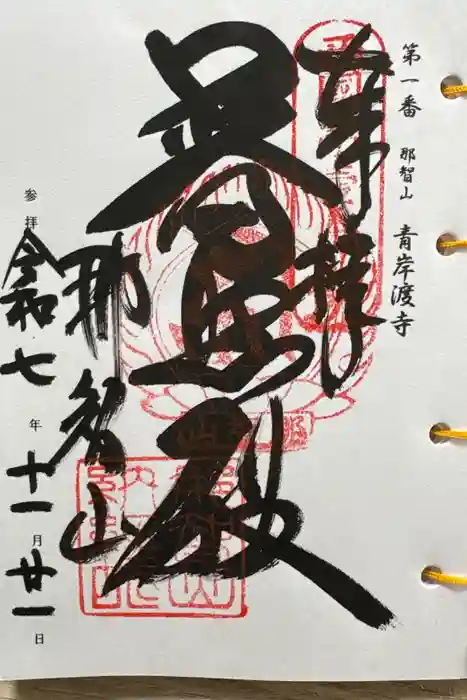 第一番 那智山 青岸渡寺
奉拝
普照殿
那智山
参拝 令和七年十一月廿一日